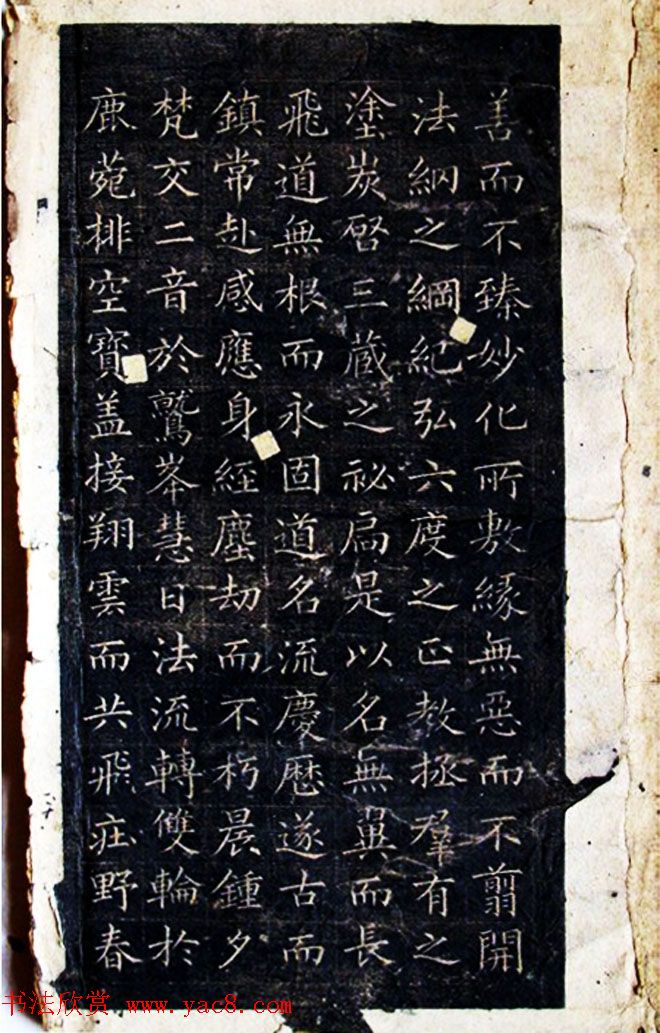 善而不臻妙化所敷緣無惡而不翦開
法網之綱紀弘六度之正教拯羣有之
塗炭啓三藏之祕扃是以名無翼而長
飛道無根而永固道名流慶歷遂古而
鎮常赴感應身經塵劫而不朽晨鍾夕
梵交二音於鷲峯慧日法流轉雙輪於
鹿菀排空寶盖接翔雲而共飛莊野春
书法欣赏 www.yac8.com